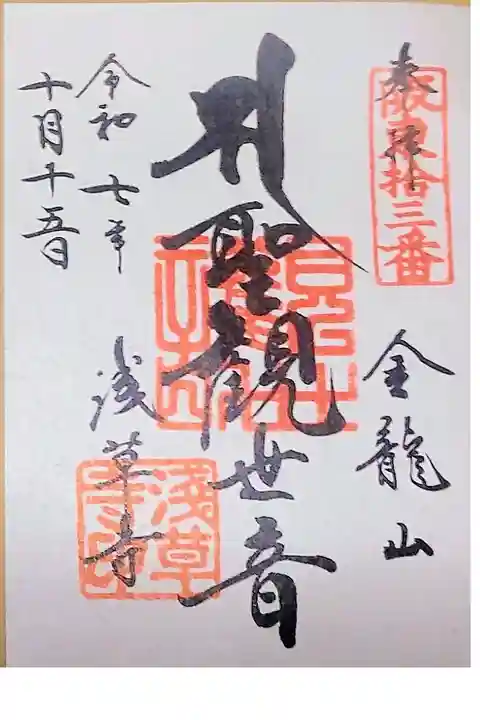 奉拝
坂東拾三番
金龍山
聖観世音
浅草寺
淺草寺印
令和七年
十月十五日